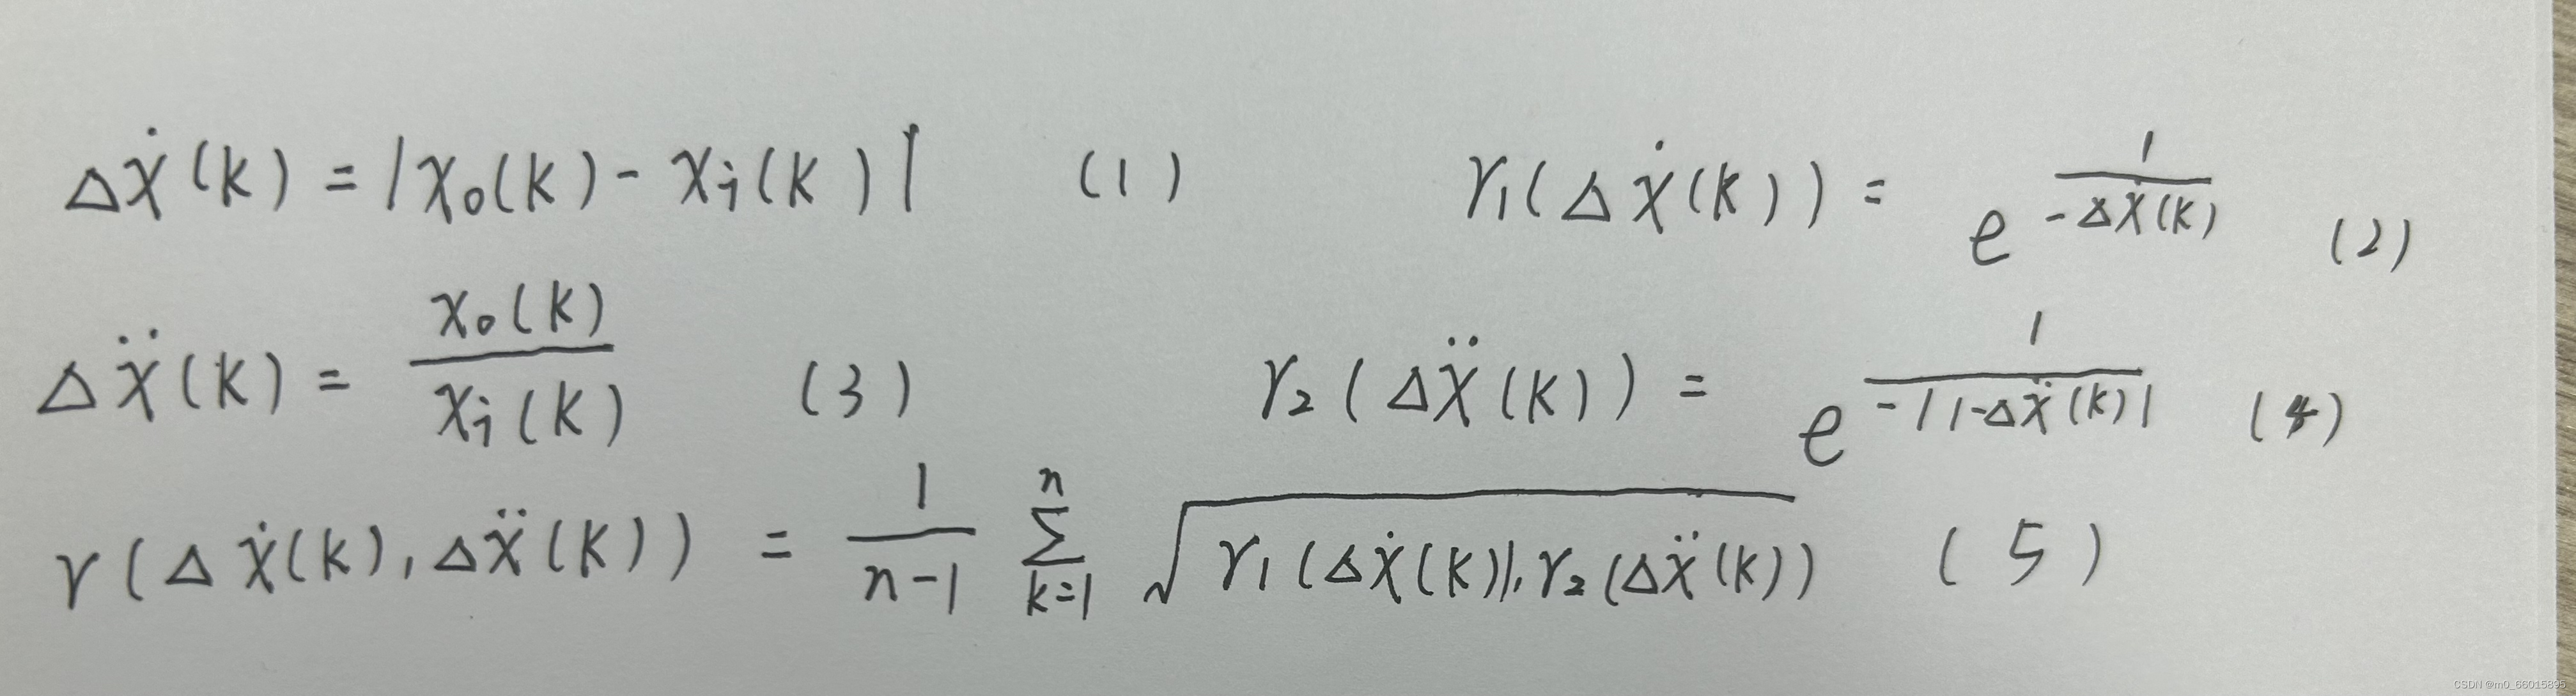 Δẋ(k) = |x₀(k) - xᵢ(k)| (1) γ₁(Δẋ(k)) = e^{1/(-Δẋ(k))} (2)
Δẍ(k) = x₀(k)/xᵢ(k) (3) γ₂(Δẍ(k)) = e^{1/(-|1-Δẍ(k)|)} (4)
γ(Δẋ(k), Δẍ(k)) = 1/(n-1) ∑_{k=1}^{n} √(γ₁(Δẋ(k)).γ₂(Δẍ(k))) (5)
CSDN @m0_66015895